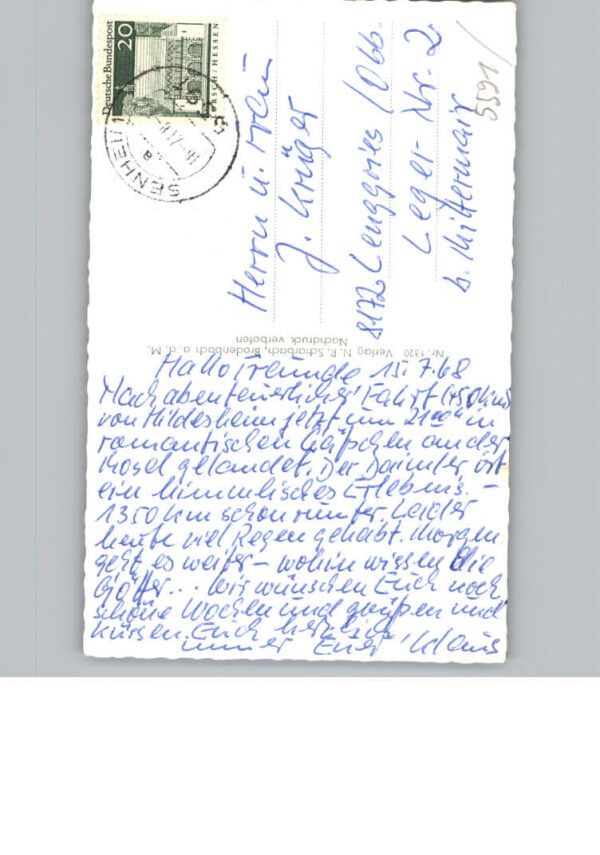 Deutsche Bundespost
20
LORSCH/HESSEN
SENHEIM
a
5591/
Herrn u. Frau
J. Krüger
8172 Lenggries / Obb.
Leger- Nr. 2
b. Mittermair
Nr. 1320 Verlag N. R. Scharbach, Brodenbach a. d. M.
Nachdruck verboten
Hallo Freunde 15.7.68
Nach abenteuerlicher Fahrt (450 km)
von Hildesheim jetzt um 21 00 in
romantischen Gäßchen an der
Mosel gelandet. Der Daimler ist
ein himmlisches Erlebnis. –
1350 km schon runter. Leider
heute viel Regen gehabt. Morgen
geht es weiter – wohin wissen die
Götter... Wir wünschen Euch noch
schöne Wochen und grüßen und
küssen Euch herzlich
immer Euer Klaus